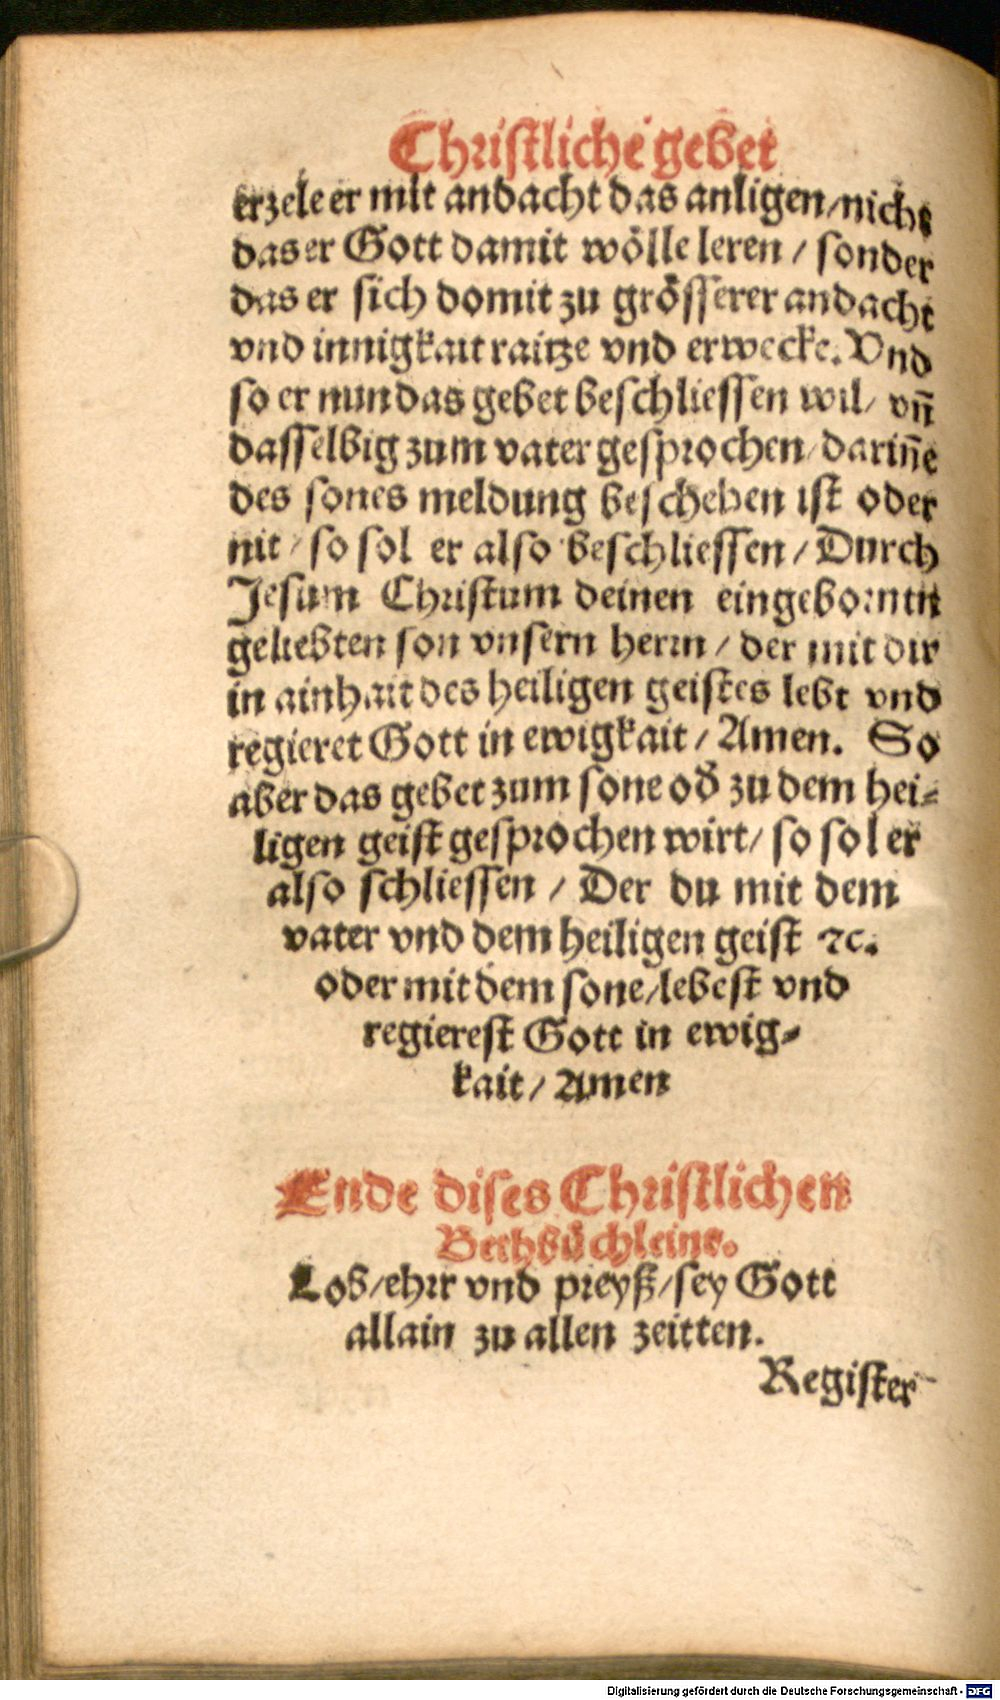 Christliche gebet
erzele er mit andacht das anligen / nicht
das er Gott damit wölle leren / sonder
das er sich domit zu grösserer andacht
vnd innigkait raitze vnd erwecke. Vnd
so er nun das gebet beschliessen wil / vñ
dasselbig zum vater gesprochen / dariñe
des sones meldung beschehen ist oder
nit / so sol er also beschliessen / Durch
Jesum Christum deinen eingebornen
geliebten son vnsern herrn / der mit dir
in ainhait des heiligen geistes lebt vnd
regieret Gott in ewigkait / Amen. So
aber das gebet zum sone od̄ zu dem hei⸗
ligen geist gesprochen wirt / so sol er
also schliessen / Der du mit dem
vater vnd dem heiligen geist ⁊c.
oder mit dem sone / lebest vnd
regierest Gott in ewig⸗
kait / Amen
Ende dises Christlichen
Bethbüchleins.
Lob / ehrr vnd preyß / sey Gott
allain zu allen zeitten.
Register
Digitalisierung gefördert durch die Deutsche Forschungsgemeinschaft - DFG